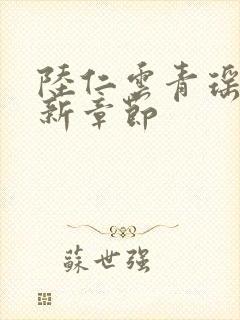 陸仁雲青瑶
新章節
蘇世强